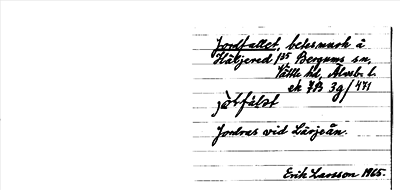 Jordfallet, betesmark å
Håljered 1/35 Bergums sn,
Vättle hd, Älvsb. l.
ek 7B 3g/471
Jordras vid Lärjeån.
Erik Larsson 1965.